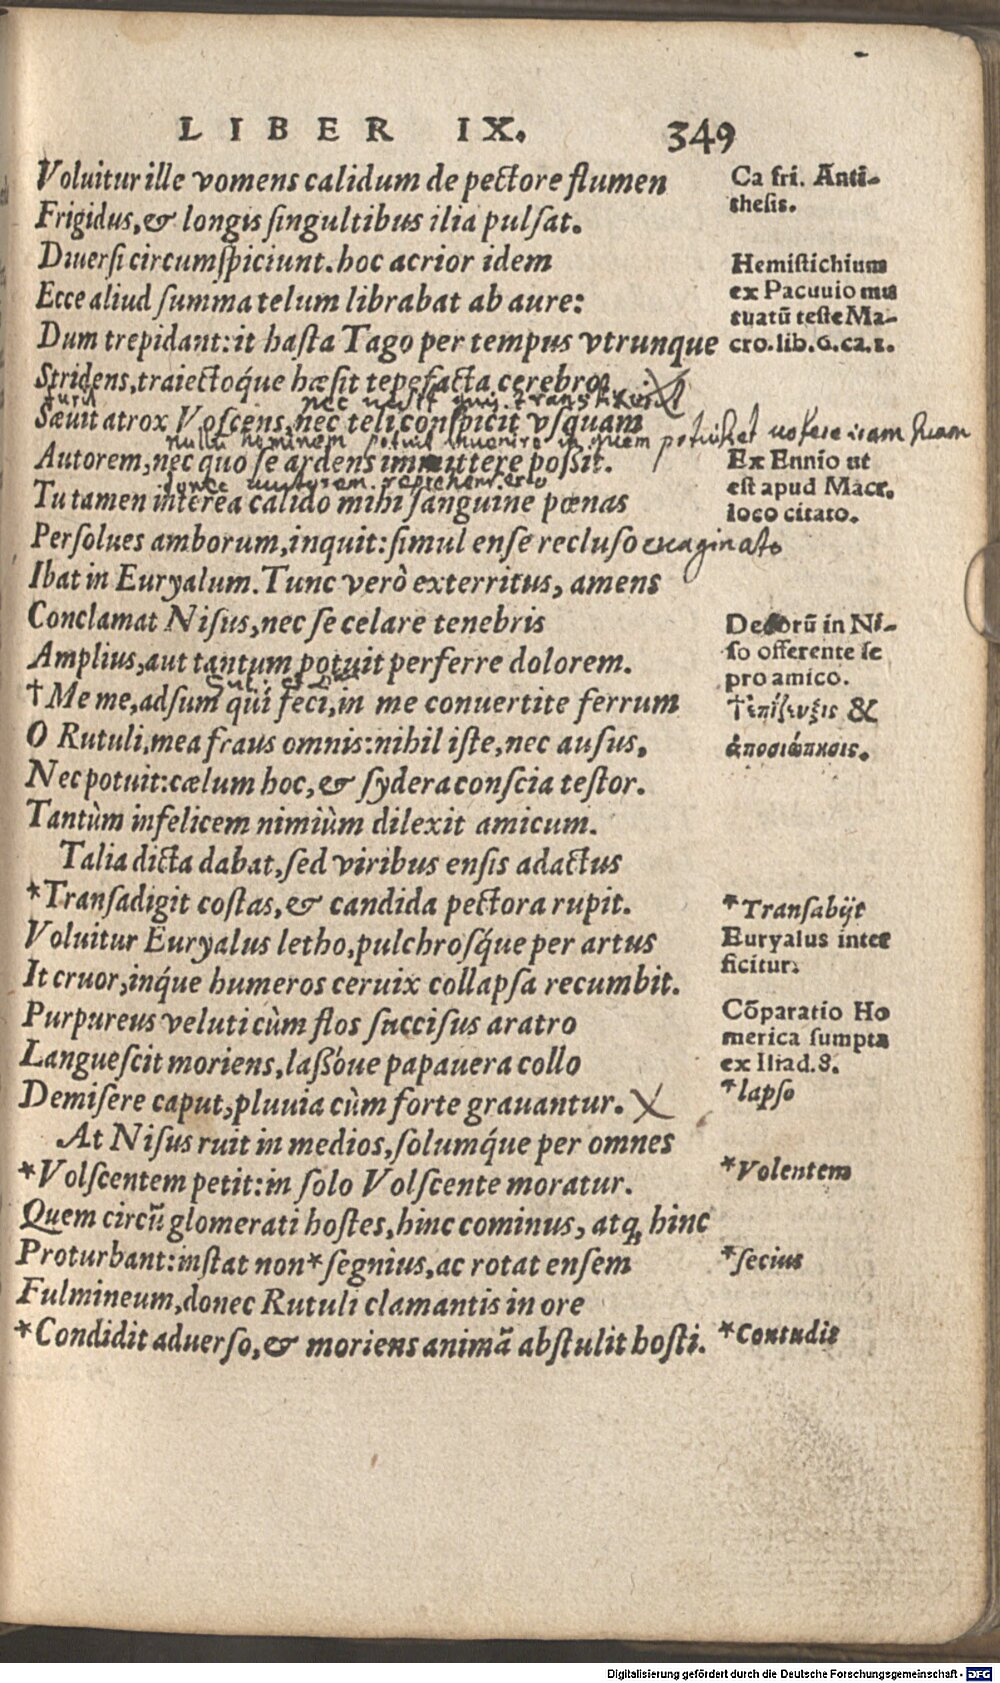 LIBER IX. 349
Voluitur ille vomens calidum de pectore flumen
Frigidus, & longis singultibus ilia pulsat.
Diuersi circumspiciunt. hoc acrior idem
Ecce aliud summa telum librabat ab aure:
Dum trepidant: it hasta Tago per tempus vtrunque
Stridens, traiectóque hæsit tepefacta cerebro.
furit
Sæuit atrox Volscens, nec teli conspicit vsquam
nullū hominem potuit inuenire in quem potuisset uo iram suam
Autorem, nec quo se ardens immittere possit.
donec
Tu tamen interea calido mihi sanguine pœnas
Persolues amborum, inquit: simul ense recluso euaginato
Ibat in Euryalum. Tunc verò exterritus, amens
Conclamat Nisus, nec se celare tenebris
Amplius, aut tantum potuit perferre dolorem.
† Me me, adsum qui feci, in me conuertite ferrum
O Rutuli, mea fraus omnis: nihil iste, nec ausus,
Nec potuit: cælum hoc, & sydera conscia testor.
Tantùm infelicem nimiùm dilexit amicum.
Talia dicta dabat, sed viribus ensis adactus
*Transadigit costas, & candida pectora rupit.
Voluitur Euryalus letho, pulchrosq́ue per artus
It cruor, inq́ue humeros ceruix collapsa recumbit.
Purpureus veluti cùm flos succisus aratro
Languescit moriens, lassóve papauera collo
Demisere caput, pluuia cùm forte grauantur.
At Nisus ruit in medios, solumq́ue per omnes
*Volscentem petit: in solo Volscente moratur.
Quem circū glomerati hostes, hinc cominus, atq; hinc
Proturbant: instat non *segnius, ac rotat ensem
Fulmineum, donec Rutuli clamantis in ore
*Condidit aduerso, & moriens animā abstulit hosti.
Ca fri. Anti-
thesis.
Hemistichium
ex Pacuuio mu
tuatū teste Ma-
cro. lib. 6. ca. 1.
Ex Ennio ut
est apud Macr.
loco citato.
Decorū in Ni-
so offerente se
pro amico.
†ἐπίζευξις &
ἀποσιώπησις.
*Transabijt
Euryalus inter
ficitur.
Cōparatio Ho
merica sumpta
ex Iliad. 8.
*lapso
*Volentem
*secius
*Contudit
Digitalisierung gefördert durch die Deutsche Forschungsgemeinschaft - DFG